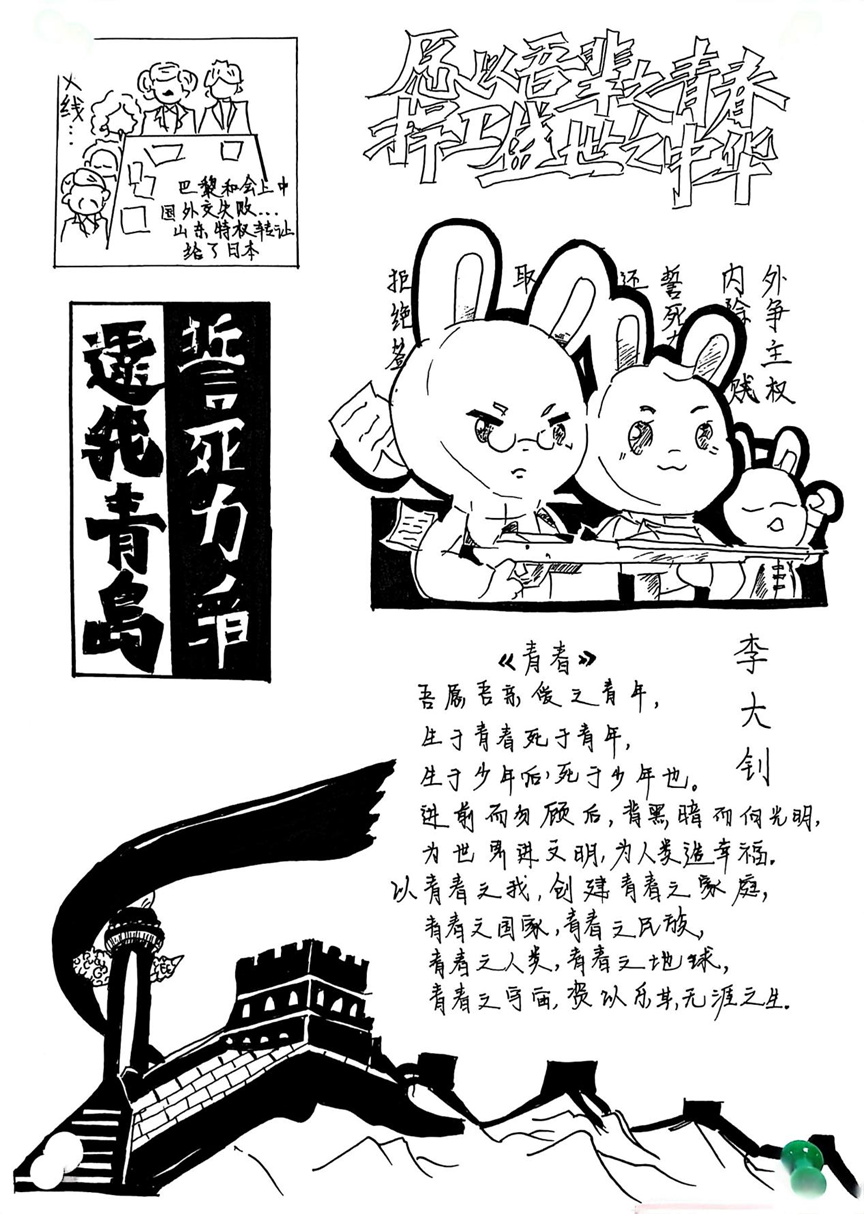 火线…
巴黎和会上中
国外交失败…
山东特权转让
给了日本
愿以吾辈之青春
捍卫盛世之中华
外争主权
内除 贼
誓死
还
取
拒绝签
誓死力争
還我青島
《青春》
李大钊
吾愿吾亲 之青年,
生于青春死于青年,
生于少年 死于少年也。
进前而勿顾后,背黑暗而向光明,
为世界进文明,为人类造幸福。
以青春之我,创建青春之家庭,
青春之国家,青春之民族,
青春之人类,青春之地球,
青春之宇宙,资以乐其无涯之生.